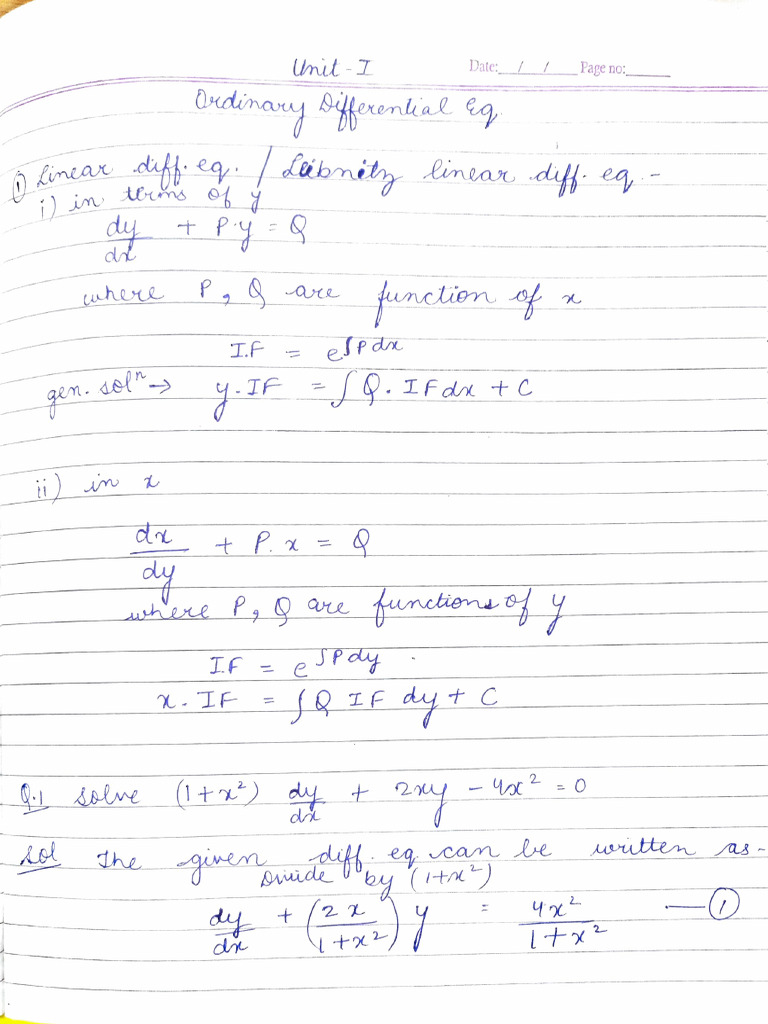 Unit - I
Date: / / Page no:
Ordinary Differential Eq.
① Linear diff. eq. / Leibnitz linear diff. eq -
i) in terms of y
dy/dx + P.y = Q
where P, Q are function of x
I.F = e^∫Pdx
gen. solⁿ → y.IF = ∫Q. IF dx + C
ii) in x
dx/dy + P.x = Q
where P, Q are functions of y
I.F = e^∫Pdy .
x. IF = ∫Q IF dy + C
Q.1 solve (1+x²) dy/dx + 2xy - 4x² = 0
Sol The given diff. eq. can be written as -
Divide by (1+x²)
dy/dx + (2x/1+x²) y = 4x²/1+x² — ①